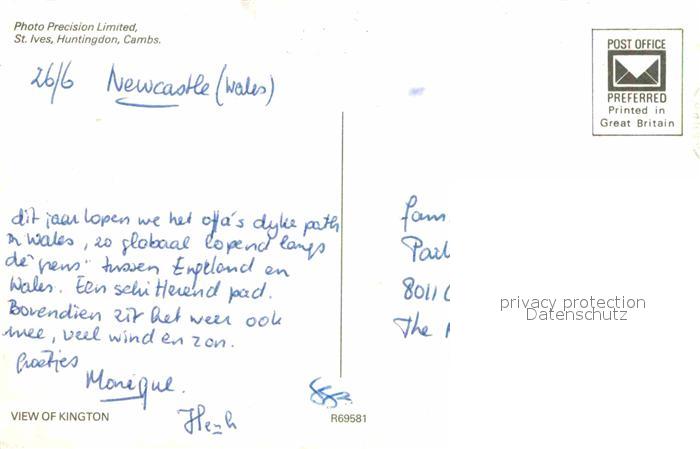 Photo Precision Limited,
St. Ives, Huntingdon, Cambs.
26/6 Newcastle (Wales)
POST OFFICE
PREFERRED
Printed in
Great Britain
dit jaar lopen we het offa's dyke path
in Wales, zo globaal lopend langs
de "grens" tussen Engeland en
Wales. Een schitterend pad.
Bovendien zit het weer ook
mee, veel wind en zon.
Groetjes
Monique.
Henk
fam
8011
The
privacy protection
Datenschutz
VIEW OF KINGTON
R69581